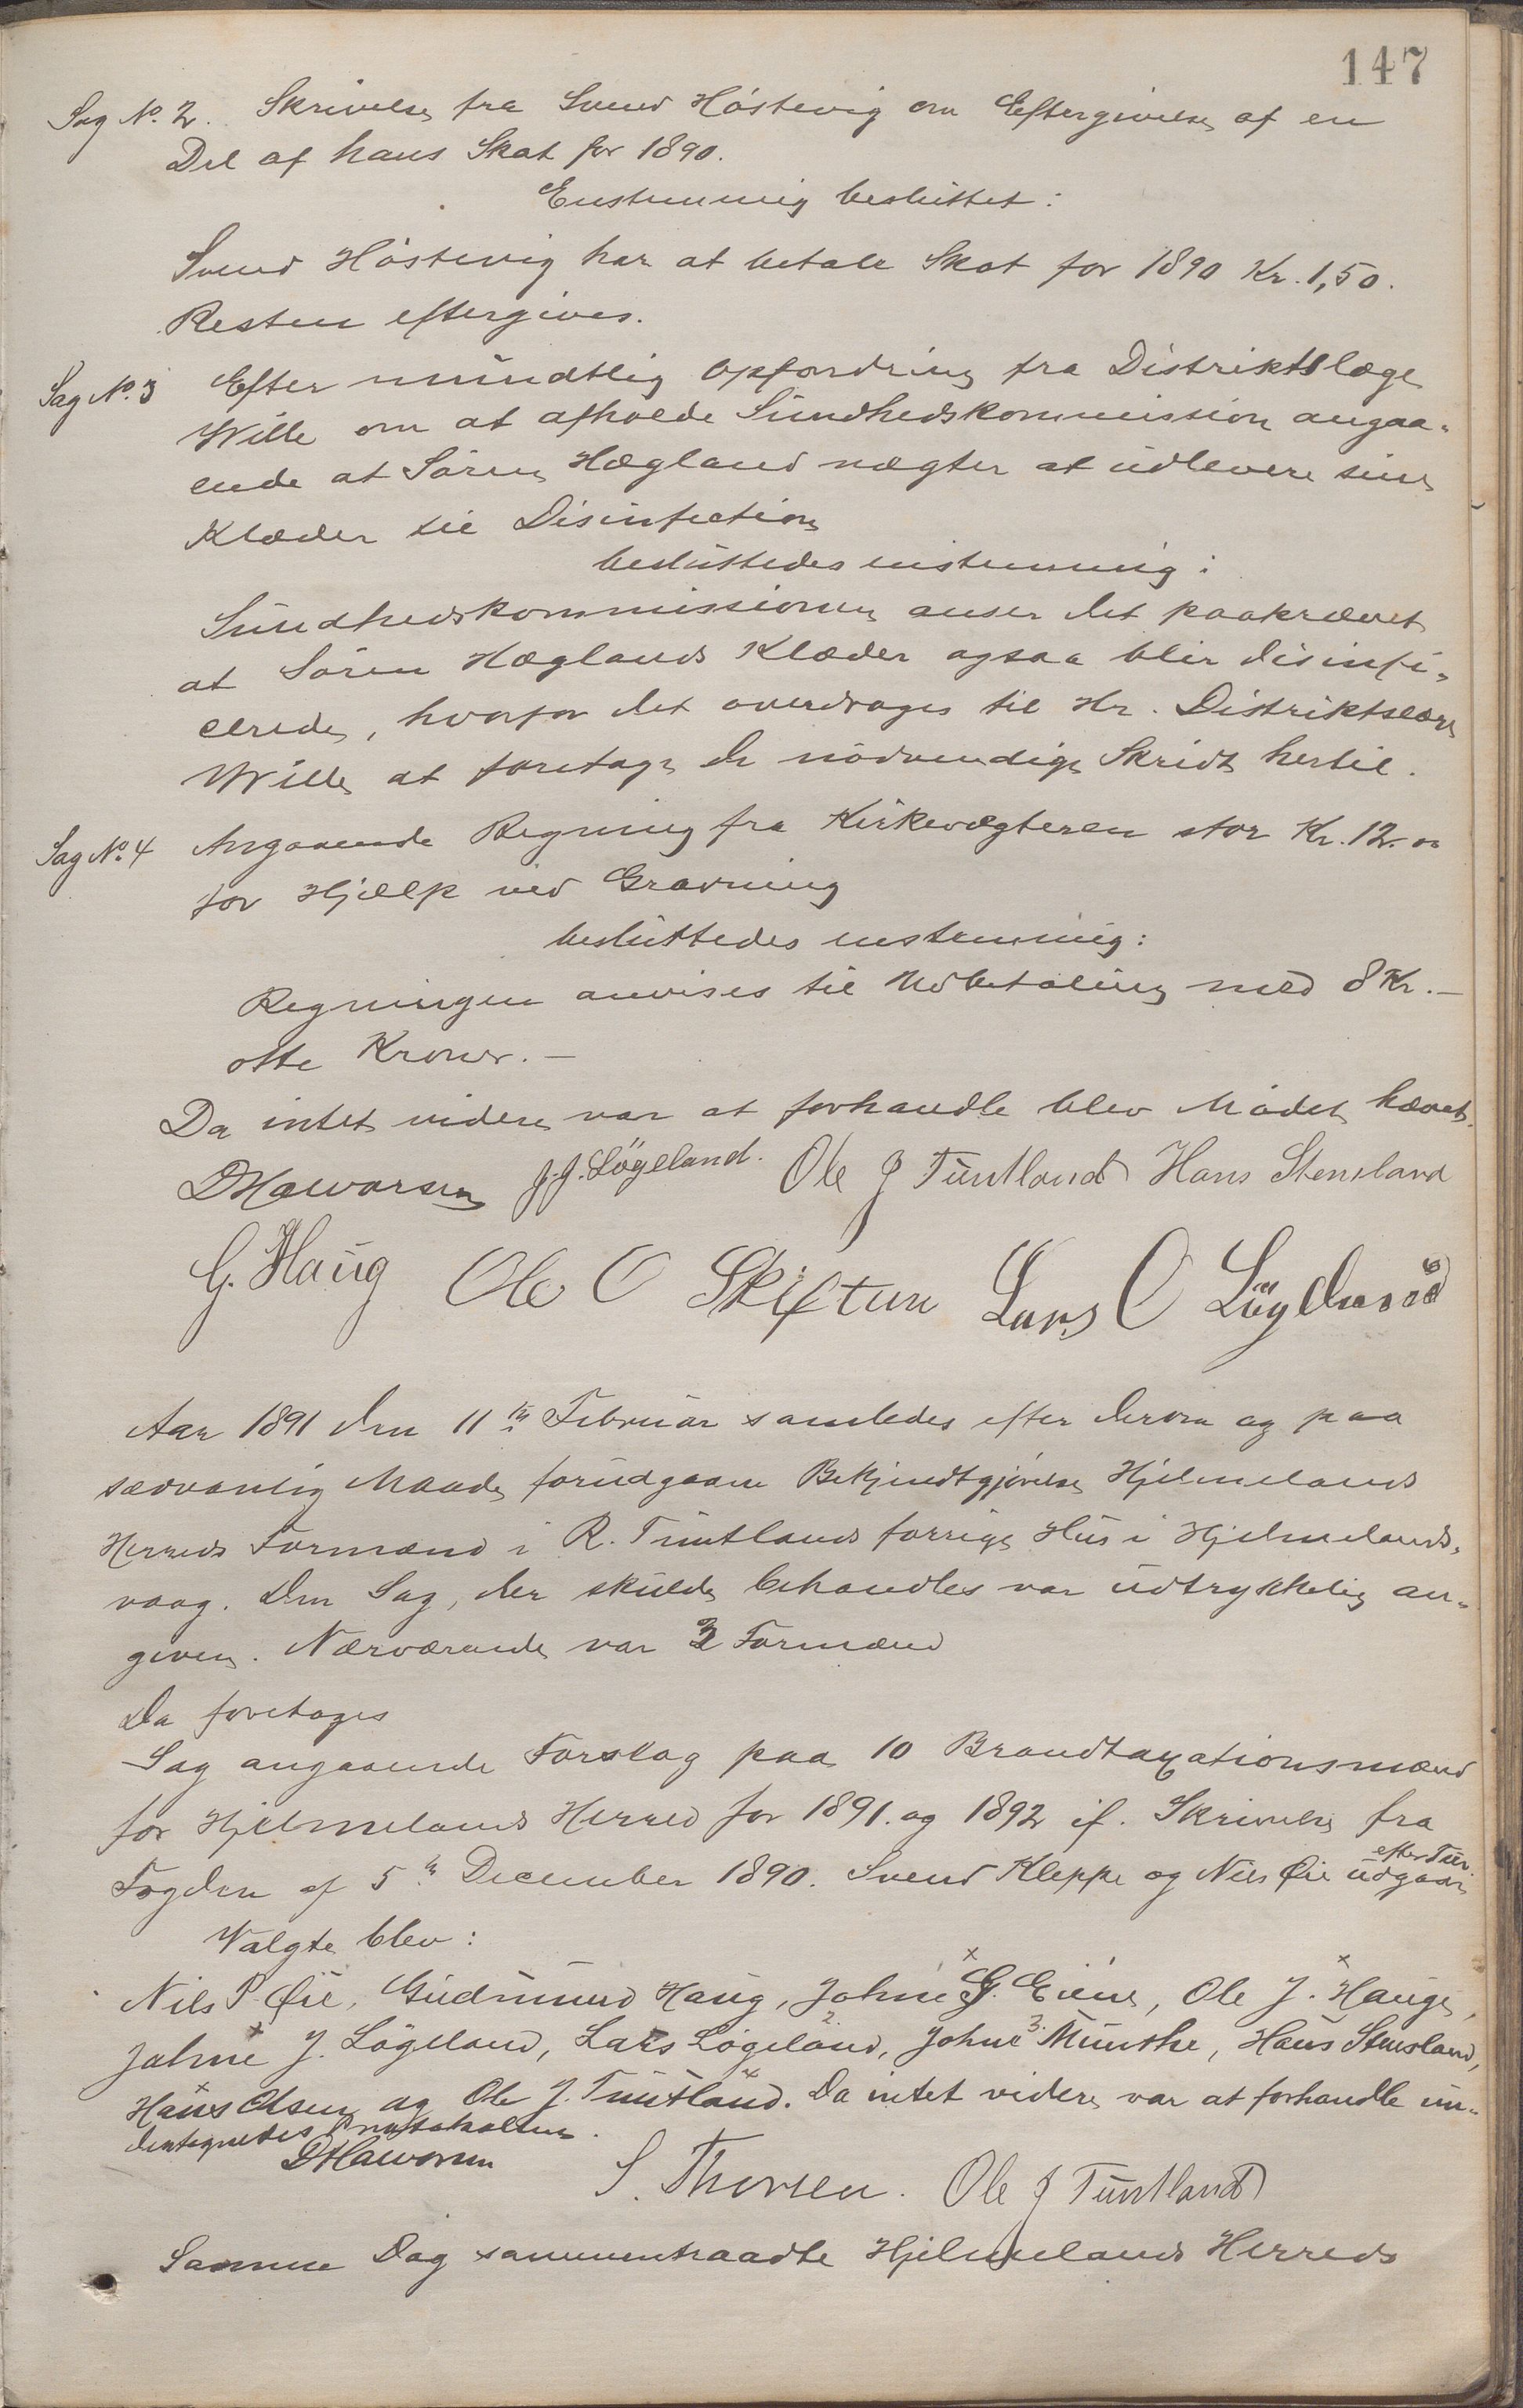 147
Sag No. 2. Skrivelse fra Svend Höstevig om Eftergivelse af en
Del af hans Skat for 1890.
Enstemmig besluttet:
Svend Höstevig har at betale Skat for 1890 Kr. 1,50.
Resten eftergives.
Sag No. 3 Efter mundtlig Opfordring fra Distriktslæge
Wille om at afholde Sundhedskommission angaa-
ende at Sören Hægland nægter at udlevere sine
Klæder til Disinfection
besluttedes enstemmig:
Sundhedskommissionen anser det paakrævet
at Sören Hæglands Klæder ogsaa blir disinfi-
cerede, hvorfor det overdrages til Hr. Distriktslæge
Wille at foretage de nödvendige Skridt hertil.
Sag No. 4 Angaaende Regning fra Kirkevægteren stor Kr. 12.00
for Hjælp ved Gravning
besluttedes enstemmig:
Regningen anvises til Udbetaling med 8 Kr. —
otte Kroner. —
Da intet videre var at forhandle blev Mödet hævet.
DHalvorsen J. J. Lögeland. Ole J Tuntland Hans Stensland
G. Haug Ole O Skiftun Lars O Lögeland
Aar 1891 den 11te Februar samledes efter derom og paa
sædvanlig Maade forudgaaen Bekjendtgjörelse Hjelmelands
Herreds Formænd i R. Tuntlands forrige Hus i Hjelmelands-
vaag. Den Sag, der skulde behandles var udtrykkelig an-
given. Nærværende var 3 Formænd
Da foretoges
Sag angaaende Forslag paa 10 Brandtaxationsmænd
for Hjelmelands Herred for 1891 og 1892 cf. Skrivelse fra
Fogden af 5te December 1890. Svend Kleppe og Nils Øie udgaar efter Tur.
Valgte blev:
Nils P. Øie, Gudmund Haug, Johne G. Eiene, Ole J. Hauge,
Johne J. Lögeland, Lars Lögeland, Johne Munthe, Hans Stensland,
Hans Olsen og Ole J. Tuntland. Da intet videre var at forhandle un-
dertegnedes Protokollen.
DHalvorsen S. Thorsen. Ole J Tuntland
Samme Dag sammentraadte Hjelmelands Herreds